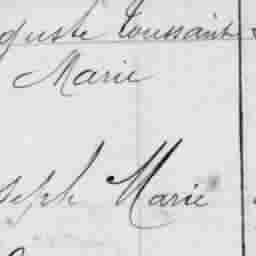 guste Toussaint
Marie
seph Marie